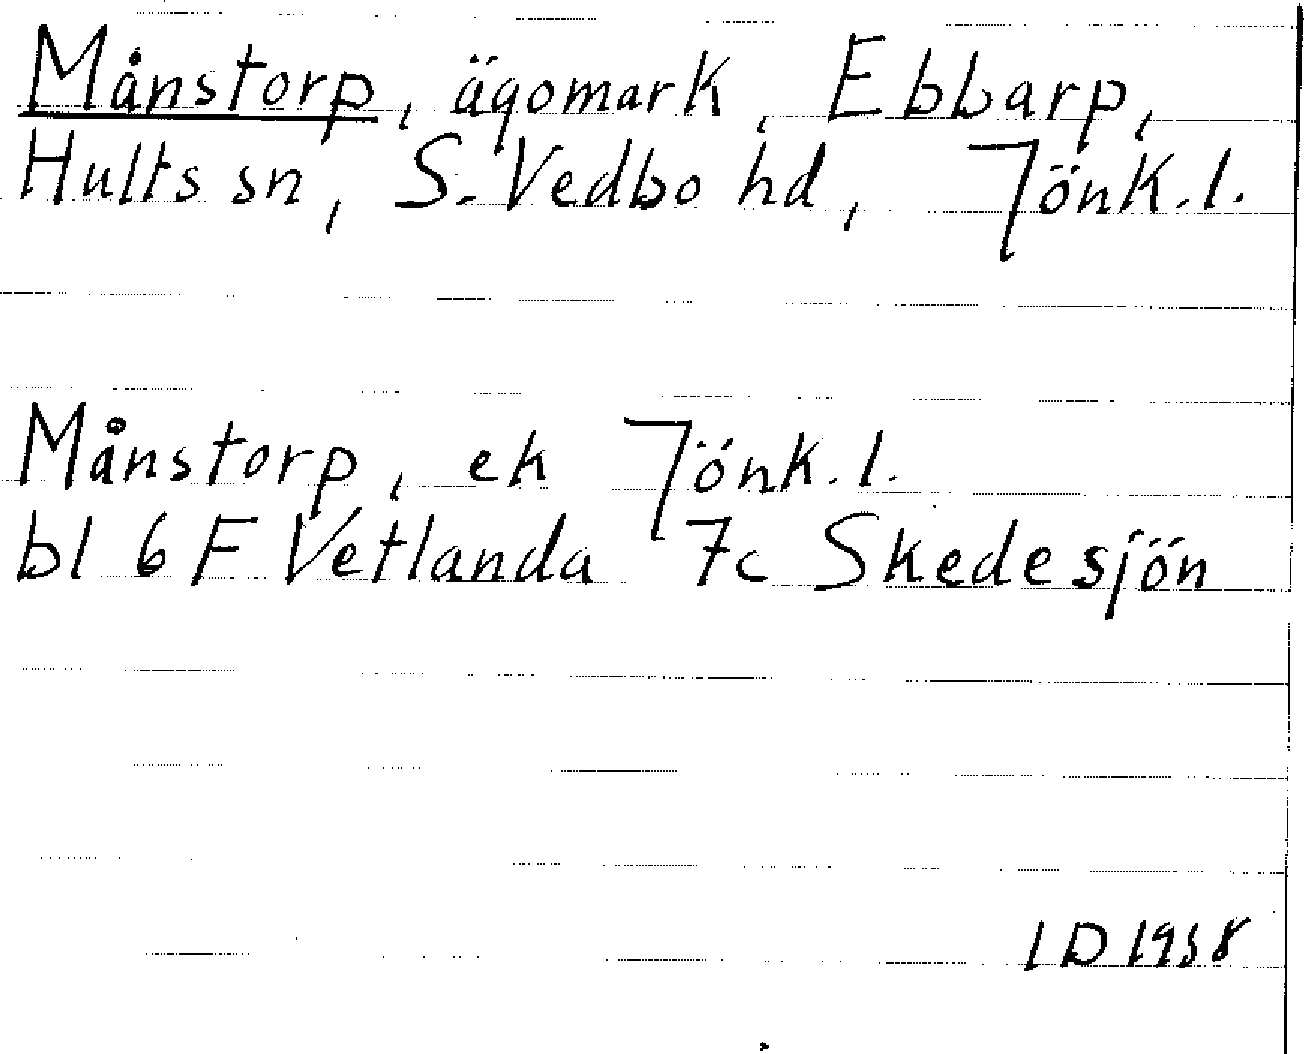 Månstorp, ägomark, Ebbarp,
Hults sn, S. Vedbo hd, Jönk.l.
Månstorp, ek Jönk.l.
bl 6 F Vetlanda 7c Skedesjön
ID 1958